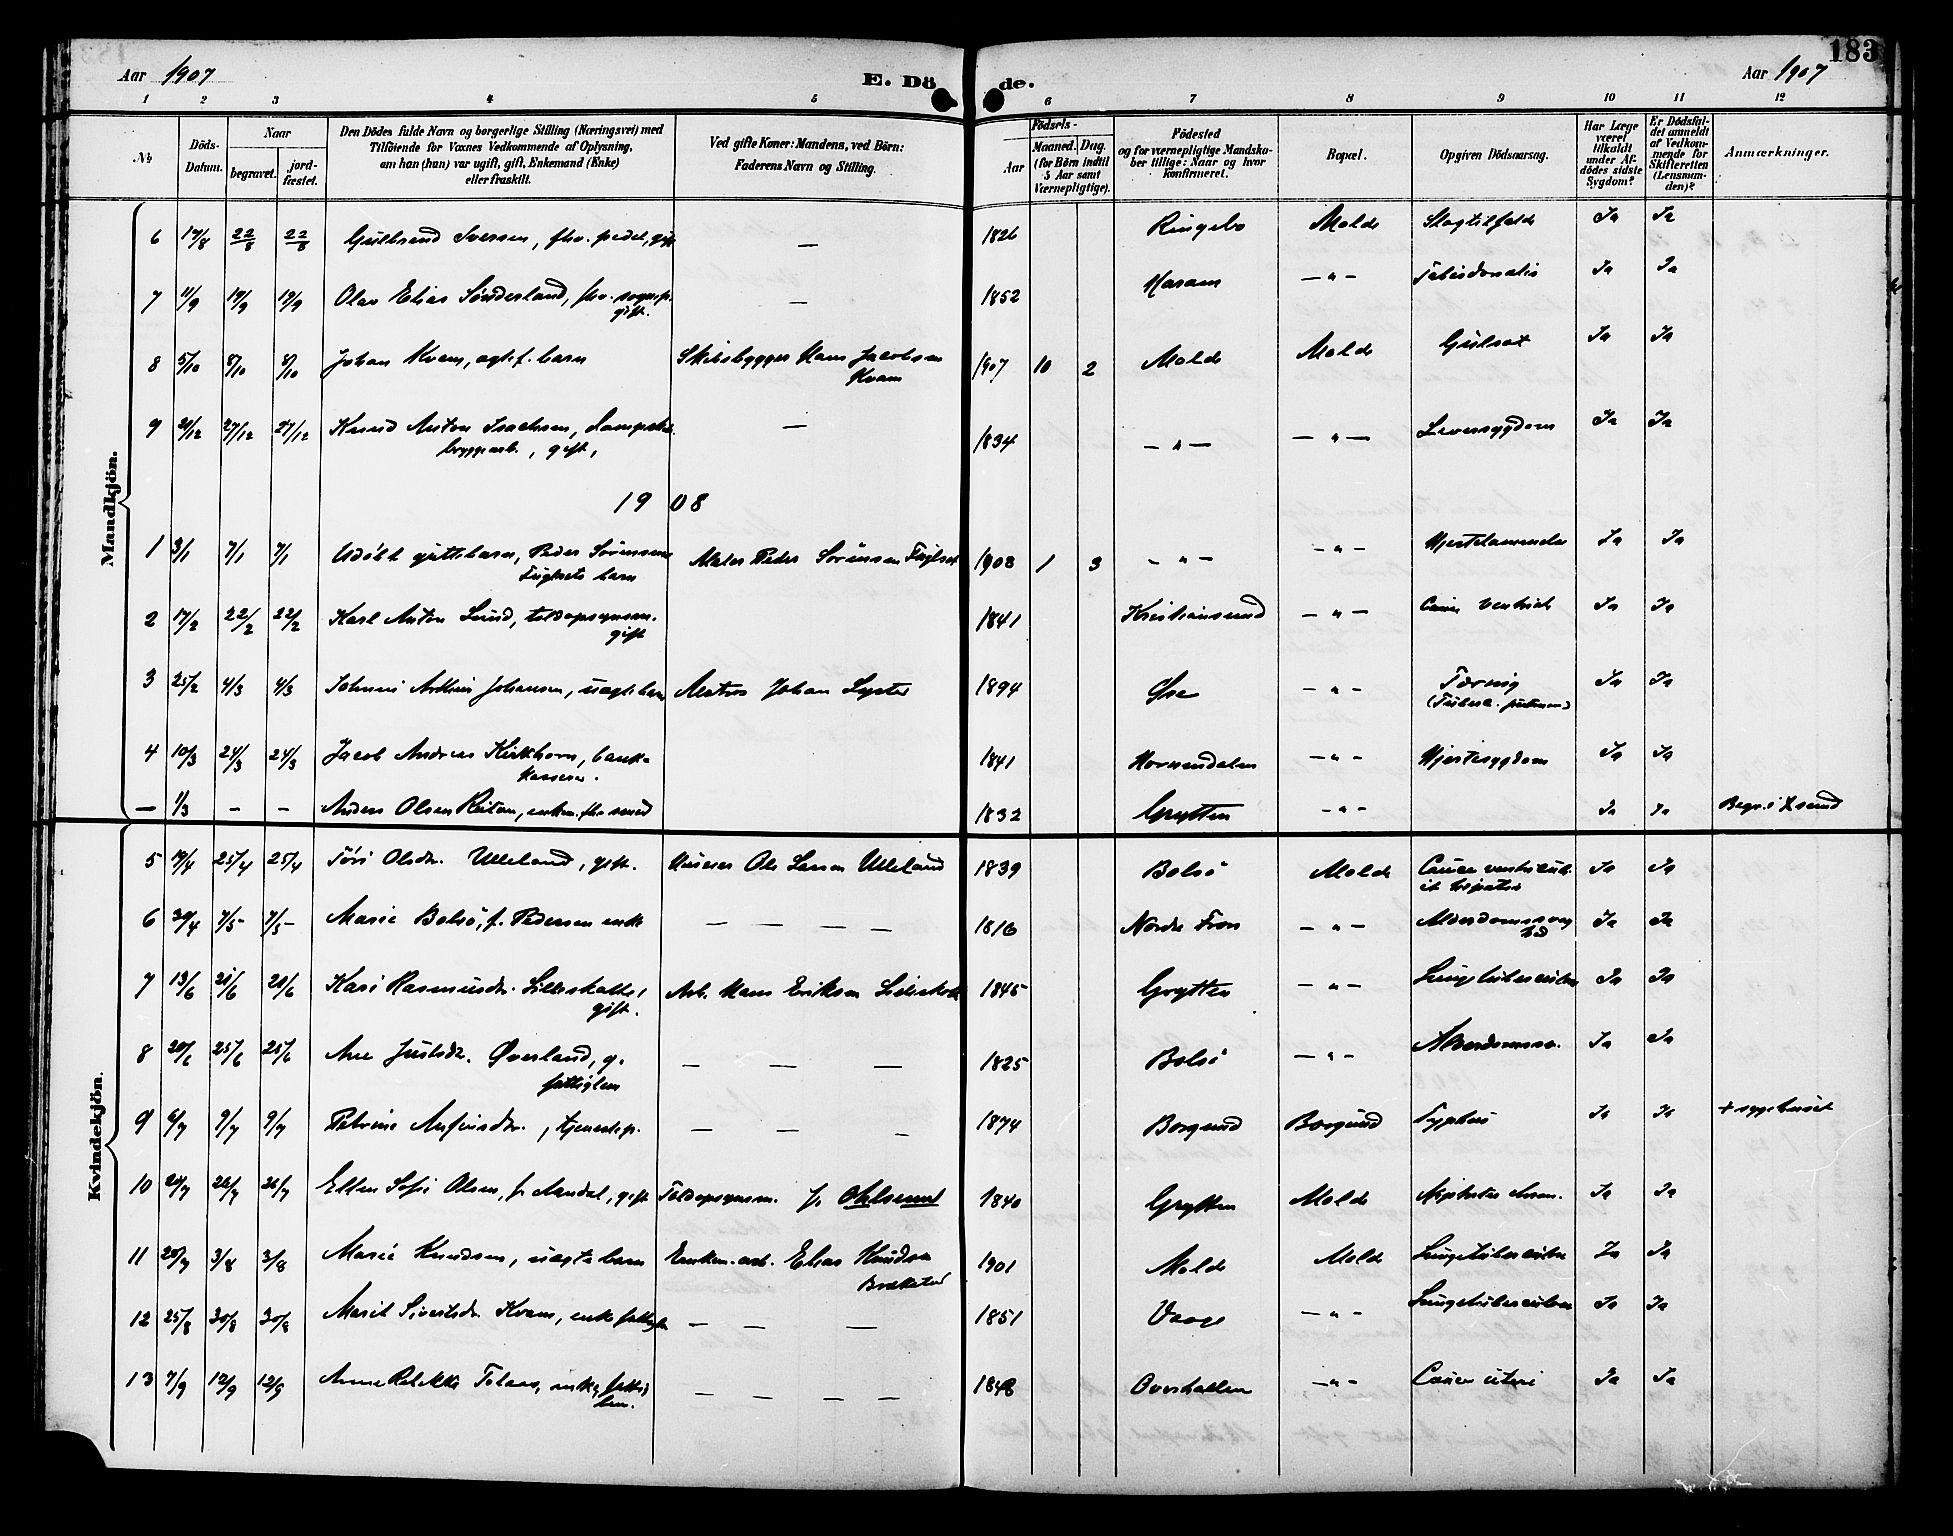 183
Aar 1907
E. Döde.
Aar 1907
1 2 3 4 5 6 7 8 9 10 11 12
№
Döds-Datum.
Naar
begravet.
jordfæstet.
Den Dödes fulde Navn og borgerlige Stilling (Næringsvei) med
Tilföiende for Voxnes Vedkommende af Oplysning,
om han (hun) var ugift, gift, Enkemand (Enke)
eller fraskilt.
Ved gifte Koner: Mandens, ved Börn:
Faderens Navn og Stilling.
Födsels-
Aar
Maaned. Dag.
(for Börn indtil
5 Aar samt
Værnepligtige).
Födested
og for værnepligtige Mandskaber tillige: Naar og hvor
konfirmeret.
Bopæl.
Opgiven Dödsaarsag.
Har Læge
været
tilkaldt
under Afdödes sidste
Sygdom?
Er Dödsfaldet anmeldt
af Vedkommende for
Skifteretten
(Lensmanden)?
Anmærkninger.
Mandkjön.
6 17/8 22/8 22/8 Gulbrand Iversen, fhv. pedel, gift — 1826 Ringebo Molde Slagtilfælde Ja Ja
7 11/9 19/9 19/9 Olav Elias Sønderland, fhv. sognep. gift. — 1852 Haram — " — Tabes dorsalis Ja Ja
8 5/10 8/10 8/10 Johan Kvam, ægtef. barn Skibsbygger Hans Jacobsen Kvam 1907 10 2 Molde Molde Gulsot Ja Ja
9 21/12 27/12 27/12 Knud Anton Isachsen, Dampskibsbryggearb., gift, — 1834 — " — — " — Leversygdom Ja Ja
1908
1 3/1 7/1 7/1 Udøbt guttebarn, Peder Sørensen Fuglsets barn Maler Peder Sørensen Fuglset 1908 1 3 — " — — " — Hjertelammelse Ja Ja
2 17/2 22/2 22/2 Karl Anton Lund, toldopsynsm. gift 1841 Kristiansund — " — Cancer ventrick Ja Ja
3 25/2 4/3 4/3 Johannes Arthur Johansen, uægte barn Matros Johan Lyster 1894 Øre — " — Tæring (Tuberc. pulmon) Ja Ja
4 10/3 24/3 24/3 Jacob Andreas Kirkhorn, bankkasserer. 1841 Hornindalen — " — Hjertesygdom Ja Ja
— 1/3 — — Anders Olsen Reitan, enkem. fhv smed 1832 Grytten — " — Ja Ja Begr. i Xsund
Kvindekjön.
5 19/4 25/4 25/4 Olsdtr. Ulleland, gift. Husmd Ole Larsen Ulleland 1839 Bolsö Molde Cancer ventriculi et hepatis Ja Ja
6 30/4 7/5 7/5 Marie Bolsö, f. Pedersen enke — — — — 1816 Nordre Fron — " — Alderdomssvaghed Ja Ja
7 13/6 20/6 20/6 Kari Rasmusdtr. Lilleskatte, gift. Arb. Hans Eriksen 1845 Grytten — " — Lungetuberculose Ja Ja
8 20/6 25/6 25/6 Ane Justsdtr. Øverland, g. fattiglem — — — 1825 Bolsö — " — Alderdomssv. Ja Ja
9 6/7 9/7 9/7 Petrine Anfinsdtr., tjenestep. — — — 1874 Borgund Borgund Typhus Ja Ja + sygehuset
10 20/7 26/7 26/7 Ellen Sofie Olsen, f. Aandal, gift Toldopsynsm. J. Ohlsen 1840 Grytten Molde Nephritis chron. Ja Ja
11 28/7 3/8 3/8 Marie Knudsen, uægte barn Enkem. arb. Elias Knudsen 1901 Molde Molde Lungetuberculose Ja Ja
12 25/8 30/8 30/8 Marit Sivertsdr Kvam, enke fattiglem — — — 1851 Vaage — " — Lungetuberculose Ja Ja
13 7/9 12/9 12/9 Anne Rebekka Tolaas, enke, fattiglem. — — — — 1848 Overhallen — " — Cancer uteri Ja Ja